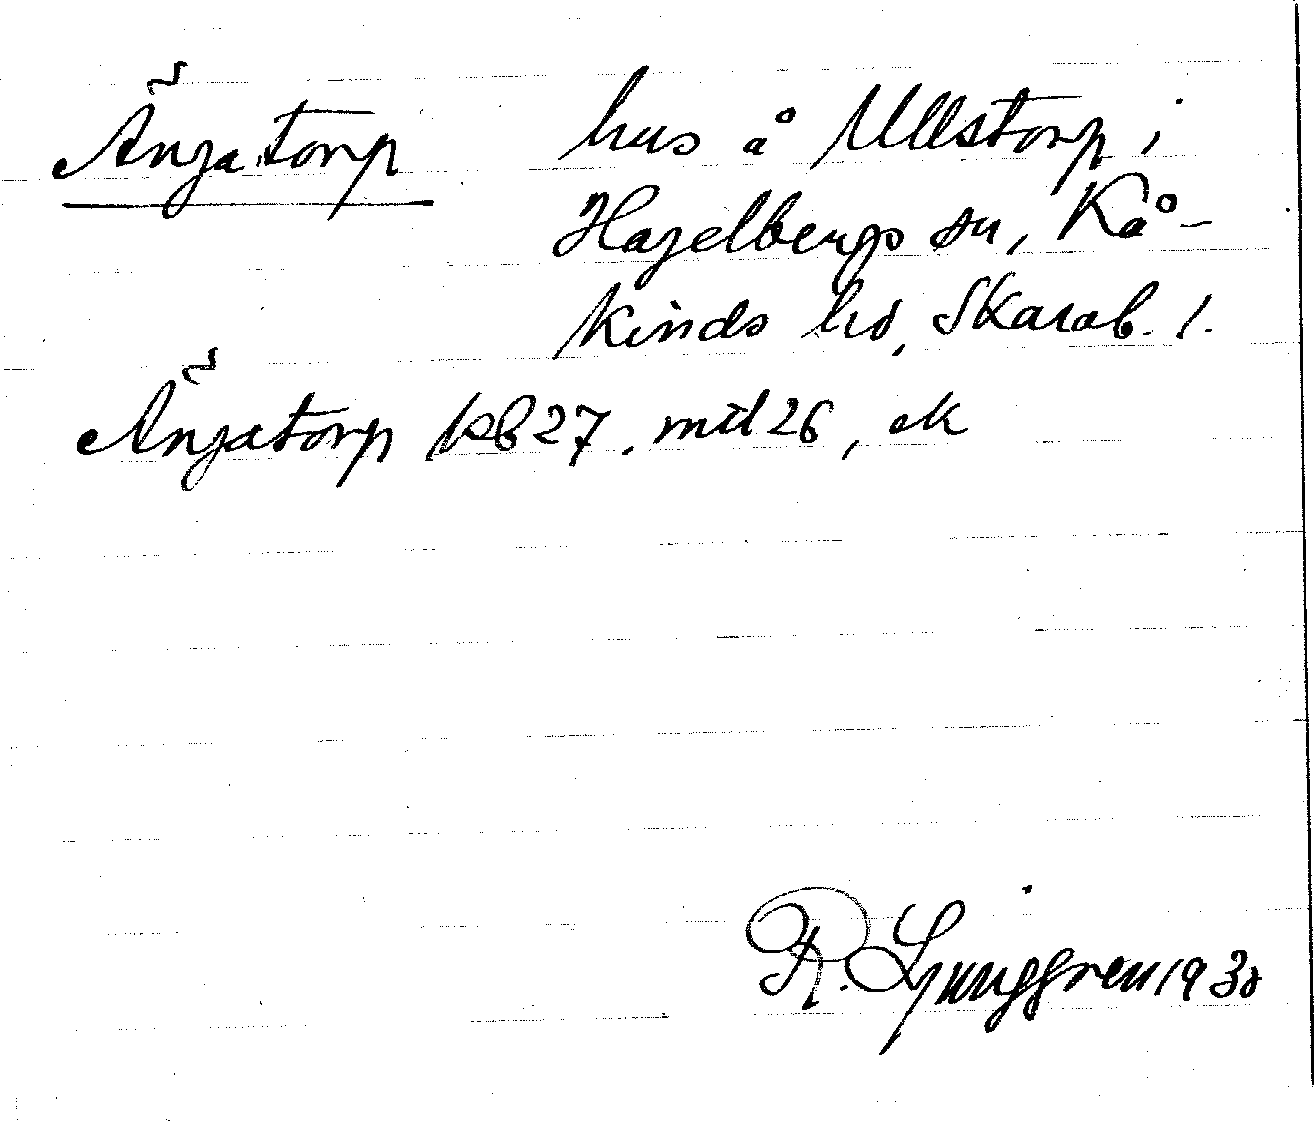 Änjatorp hus å Ullstorp i
Hagelbergs sn, Kå-
kinds hd, Skarab. l.
Änjatorp kb 27, mtl 26, ek
R. Ljunggren 1930